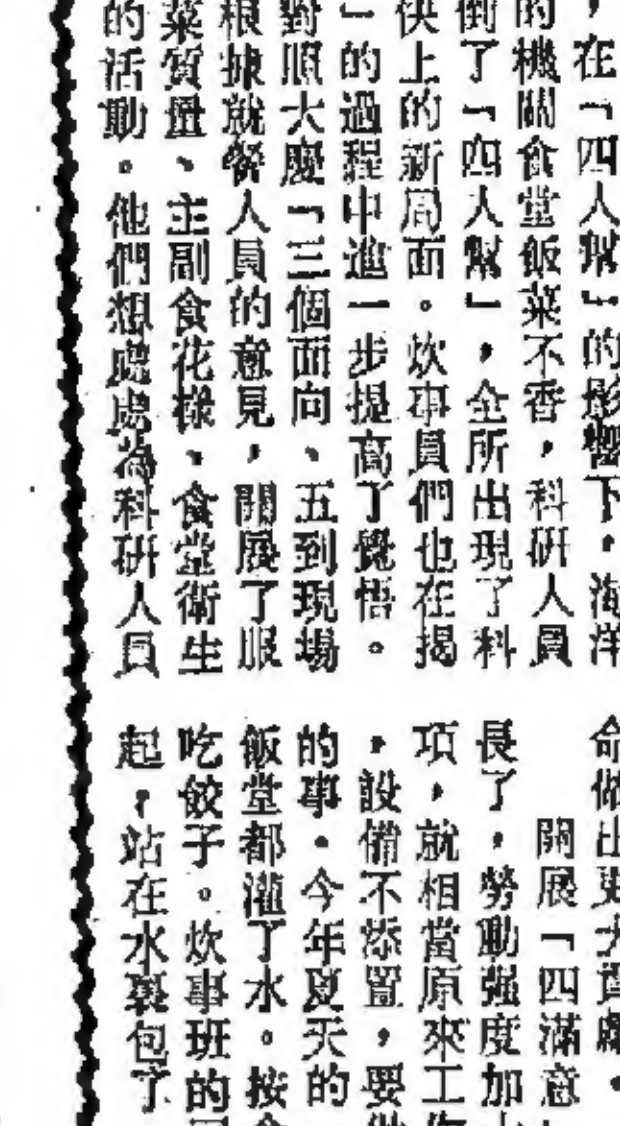 ，在「四人幫」的影響下，海洋
的機關食堂飯菜不香，科研人員
倒了「四人幫」，全所出現了科
快上的新局面。炊事員們也在揭
」的過程中進一步提高了覺悟。
對照大慶「三個面向、五到現場
根據就餐人員的意見，開展了服
菜質量、主副食花樣、食堂衛生
的活動。他們想處處為科研人員
命做出更大貢獻。
開展「四滿意
長了，勞動強度加
項，就相當原來工作
，設備不添置，要
的事。今年夏天的
飯堂都灌了水。按
吃餃子。炊事班的
起，站在水裏包了